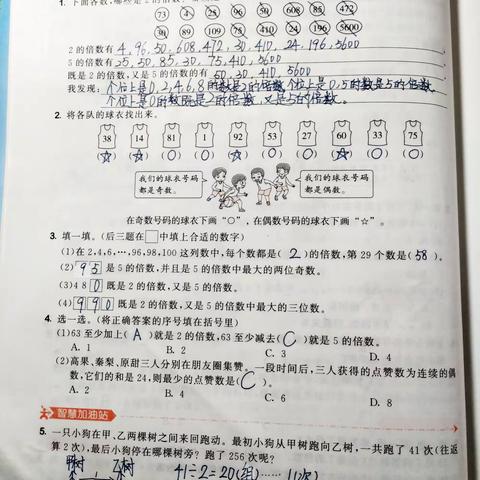 73 4 25 96 50 608 85 472
30 89 109 75 410 24 196 5600
2的倍数有 4,96,50,608,472,30,410,24,196,5600
5的倍数有 25,50,85,30,75,410,5600
既是2的倍数,又是5的倍数的有 50,30,410,5600
我发现: 个位上是0,2,4,6,8的数是2的倍数,个位上是0,5的数是5的倍数
个位上是0的数既是2的倍数,又是5的倍数。
2. 将各队的球衣找出来。
38 14 81 1 92 53 27 60 33 75
☆ ☆ ○ ○ ☆ ○ ○ ☆ ○ ○
我们的球衣号码都是奇数。
我们的球衣号码都是偶数。
在奇数号码的球衣下画“○”,在偶数号码的球衣下画“☆”。
3. 填一填。(后三题在□中填上合适的数字)
(1)在2,4,6,…,96,98,100这列数中,每个数都是( 2 )的倍数,第29个数是( 58 )。
(2) 95 是5的倍数,并且是5的倍数中最大的两位奇数。
(3)480 既是2的倍数,又是5的倍数。
(4) 990 既是2的倍数,又是5的倍数中最大的三位数。
4. 选一选。(将正确答案的序号填在括号里)
(1)63至少加上( A )就是2的倍数,63至少减去( C )就是5的倍数。
A. 1 B. 2 C. 3 D. 4
(2)高果、秦梨、原甜三人分别在朋友圈集赞。一段时间后,三人获得的点赞数为连续的偶
数,它们的和是24,则最少的点赞数是( C )。
A. 2 B. 4 C. 6 D. 8
智慧加油站
5. 一只小狗在甲、乙两棵树之间来回跑动。最初小狗从甲树跑向乙树,一共跑了41次(往返
算2次),最后小狗停在哪棵树旁?跑了256次呢?
甲树 乙树 41÷2=20(组)……1(次)